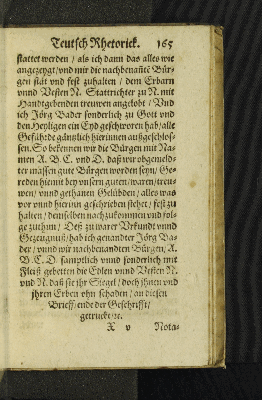 Teutsch Rhetorick. 165
stattet werden / als ich dann das alles wie
angezeygt / vnd mir die nachbenañte Bür-
gen stät vnd fest zuhalten / dem Erbarn
vnnd Vesten N. Stattrichter zu N. mit
Handtgebenden treuwen angelobt / Vnd
ich Jörg Bader sonderlich zu Gott vnd
den Heyligen ein Eyd geschworen hab / alle
Gefährde gäntzlich hierinnen außgeschlos-
sen. So bekennen wir die Bürgen mit Na-
men A. B. C. vnd D. daß wir obgemeld-
ter massen gute Bürgen worden seyn / Ge-
reden hierin bey vnsern guten / waren / treu-
wen / vnnd gethanen Gelübden / alles was
vor vnnd hierinn geschrieben stehet / fest zu
halten / demselben nachzukommen vnd fol-
ge zuthun / Deß zu warer Vrkundt vnnd
Gezeugnuß / hab ich genandter Jörg Ba-
der / vnnd wir nachbenandten Bürgen / A.
B. C. D. samptlich vnnd sonderlich mit
Fleiß gebetten die Edlen vnnd Vesten N.
vnd N. daß sie jhr Siegel / doch jhnen vnd
jhren Erben ohn schaden / an diesen
Brieff / ende der Geschrifft /
getruckt / ꝛc.
X v Nota-